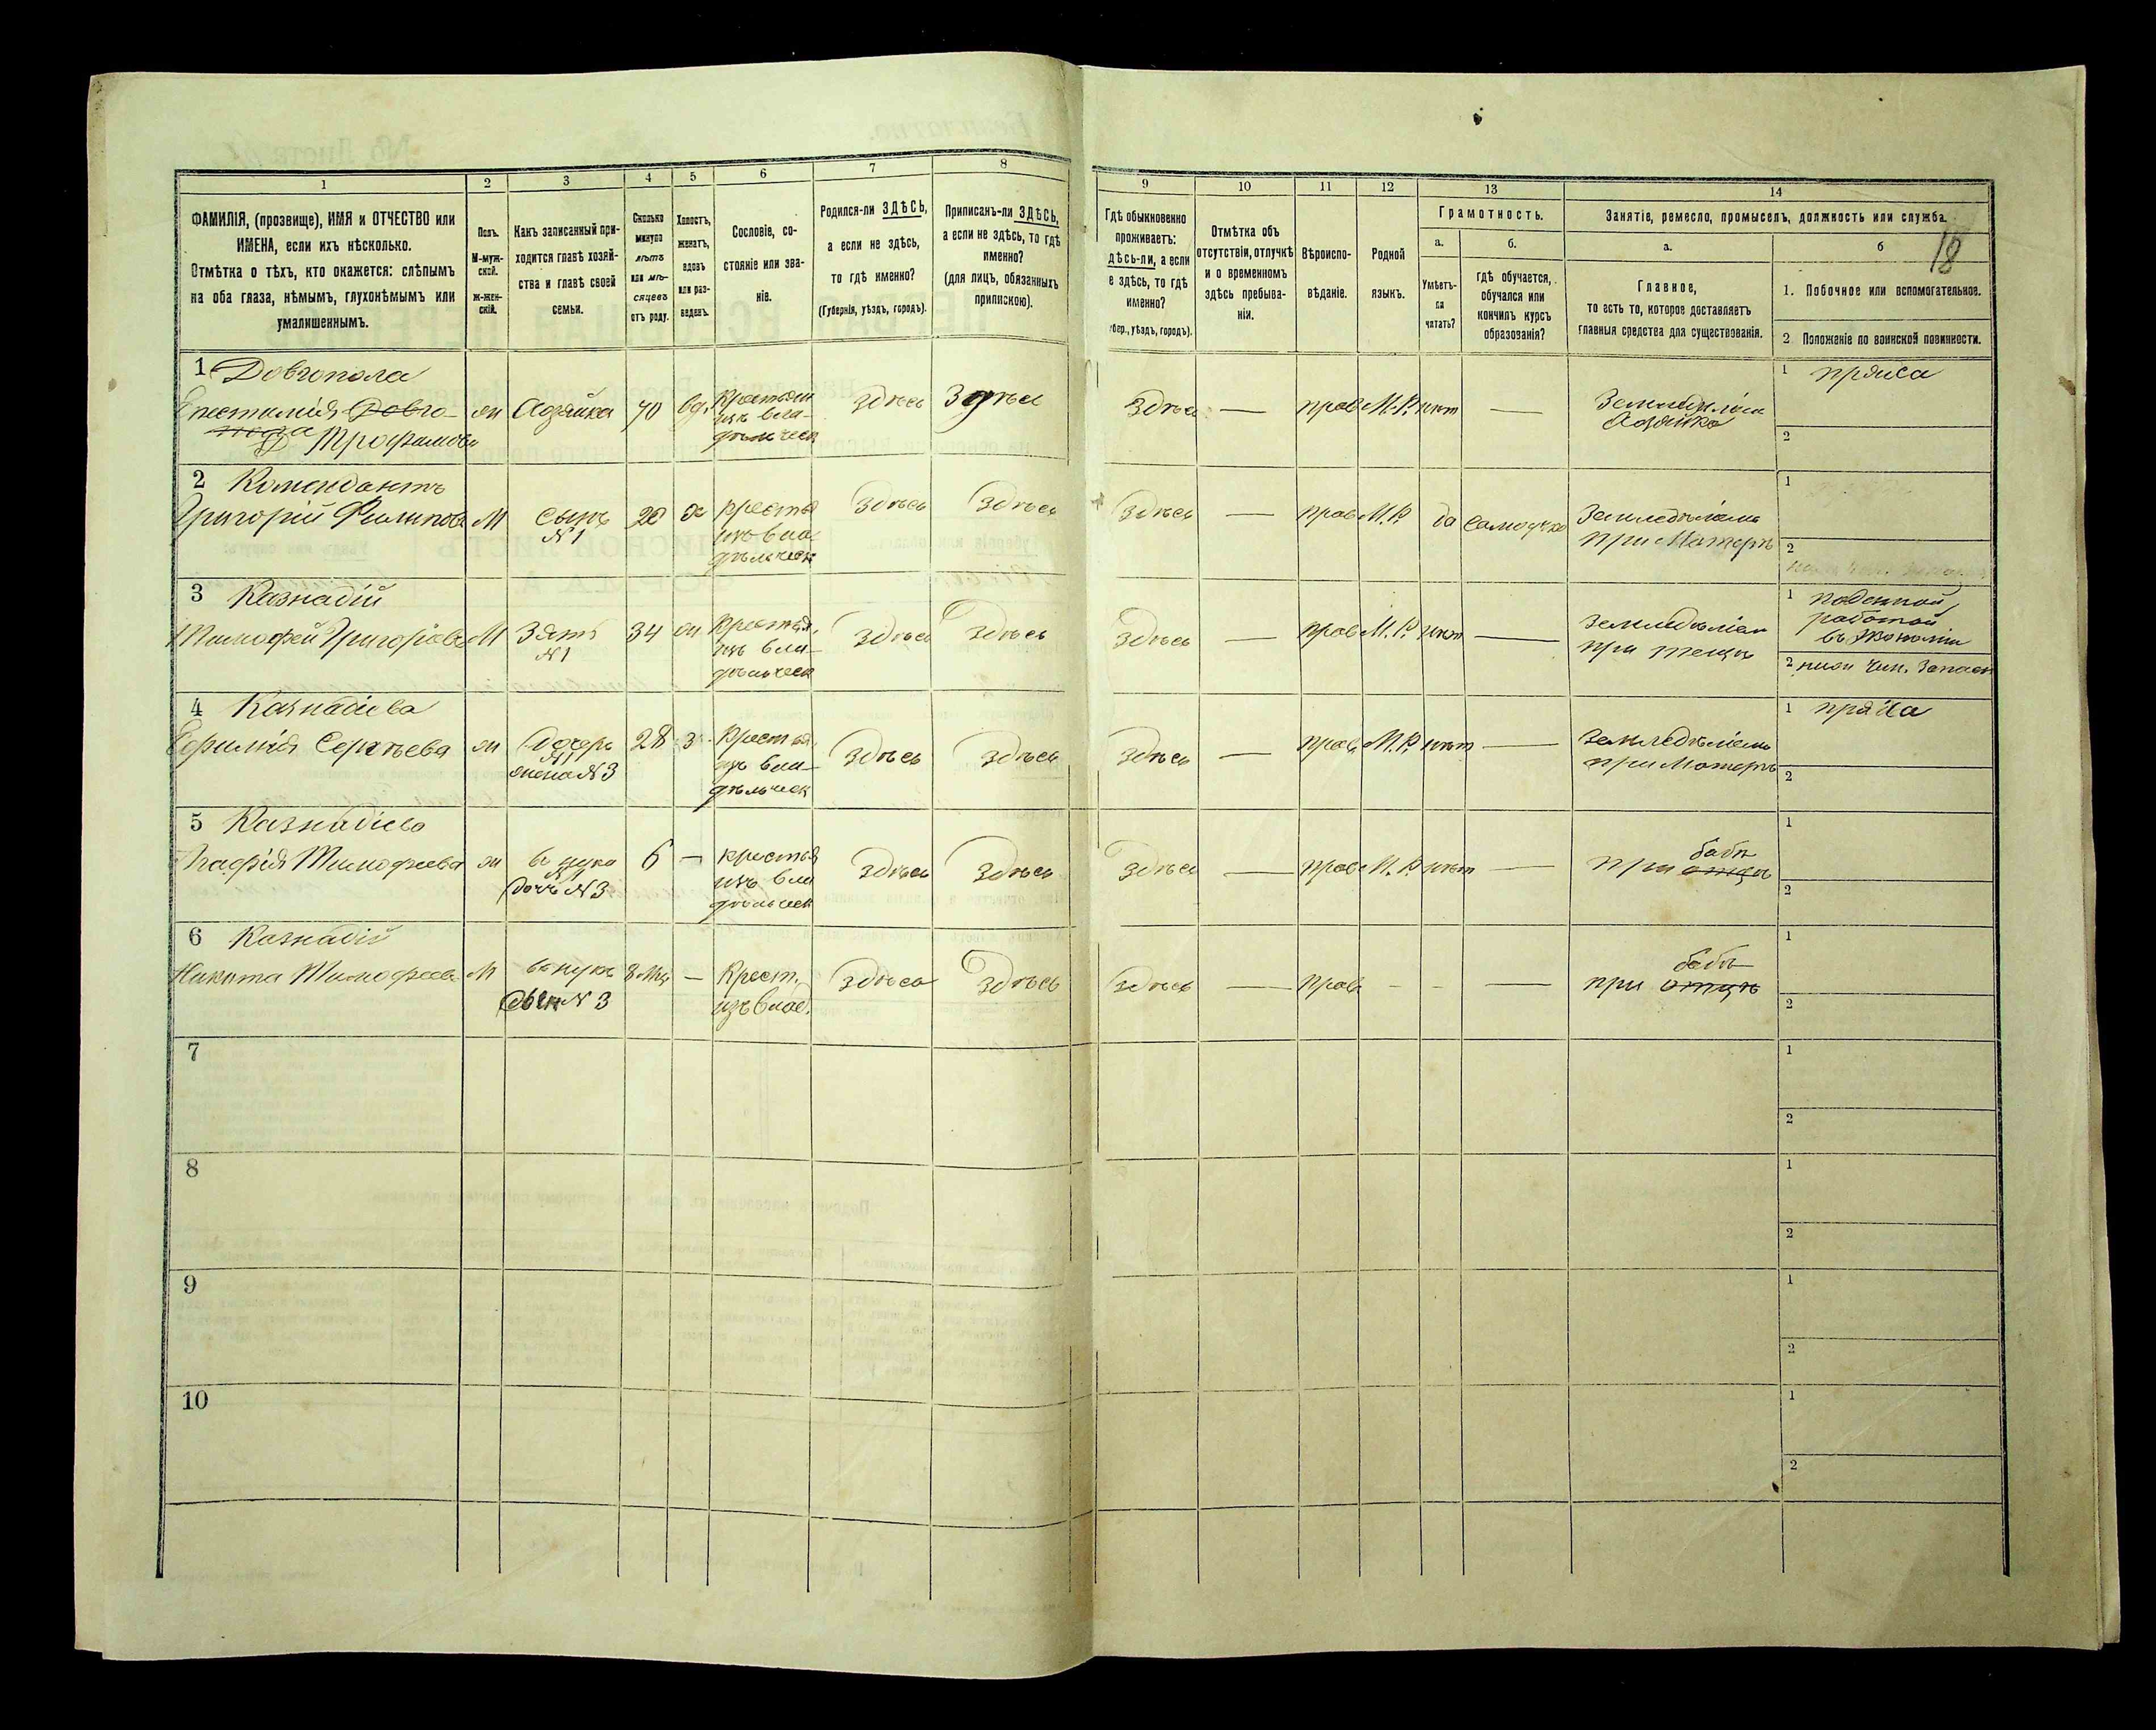 18
1
ФАМИЛІЯ, (прозвище), ИМЯ и ОТЧЕСТВО или
ИМЕНА, если ихъ нѣсколько.
Отмѣтка о тѣхъ, кто окажется: слѣпымъ
на оба глаза, нѣмымъ, глухонѣмымъ или
умалишеннымъ.
2
Полъ.
М-муж-
ской.
ж-жен-
скій.
3
Какъ записанный при-
ходится главѣ хозяй-
ства и главѣ своей
семьи.
4
Сколько
минуло
лѣтъ
или мѣ-
сяцевъ
отъ роду.
5
Холостъ,
женатъ,
вдовъ
или раз-
веденъ.
6
Сословіе, со-
стояніе или зва-
ніе.
7
Родился-ли ЗДѢСЬ,
а если не здѣсь,
то гдѣ именно?
(Губернія, уѣздъ, городъ).
8
Приписанъ-ли ЗДѢСЬ,
а если не здѣсь, то гдѣ
именно?
(для лицъ, обязанныхъ
припискою).
9
Гдѣ обыкновенно
проживаетъ:
дѣсь-ли, а если
е здѣсь, то гдѣ
именно?
убер., уѣздъ, городъ).
10
Отмѣтка объ
отсутствіи, отлучкѣ
и о временномъ
здѣсь пребыва-
ніи.
11
Вѣроиспо-
вѣданіе.
12
Родной
языкъ.
13
Грамотность.
а.
Умѣетъ-
ли
читать?
б.
гдѣ обучается,
обучался или
кончилъ курсъ
образованія?
14
Занятіе, ремесло, промыселъ, должность или служба.
а.
Главное,
то есть то, которое доставляетъ
главныя средства для существованія.
б
1. Побочное или вспомогательное.
2 Положеніе по воинской повинности.
1 Довгопола
Трофимова
ж
Хозяйка
70
вд.
Крестьян
изъ вла-
дѣльческ
Здѣсь
Здѣсь
Здѣсь
—
прав
М.Р.
нѣт
—
Хозяйка
1 пряха
2
2 Комендантъ
Григорій Филипов
М
Сынъ
N 1
20
х
крестья
изъ вла
дѣльческ
Здѣсь
Здѣсь
Здѣсь
—
прав
М.Р.
да
самоучко
Земледѣліемъ
при Матери
1
2
3 Казнадій
Тимофей Григоріев
М
Зять
N 1
34
ж
Крестья.
изъ вла-
дѣльческ
Здѣсь
Здѣсь
Здѣсь
—
прав
М.Р.
нѣт
—
Земледѣліем
при тещѣ
1 поденной
работой
въ Экономіи
2 нижн Чин. Запасн
4 Казнадіева
Ефимія Сергѣева
ж
Дочерь
N 1
жена N 3
28
з
Крестья.
изъ вла-
дѣльческ
Здѣсь
Здѣсь
Здѣсь
—
прав
М.Р.
нѣт
—
Земледѣліемъ
при Матери
1 пряха
2
5 Казнадіева
Агафія Тимофеева
ж
внука
N 1
дочь N 3
6
—
крестья
изъ вла
дѣльческ
Здѣсь
Здѣсь
Здѣсь
—
прав
М.Р.
нѣт
—
бабѣ
при отцѣ
1
2
6 Казнадій
Никита Тимофеев
М
внукъ
сын N 3
8 мц
—
Крест.
изъ влад.
Здѣсь
Здѣсь
Здѣсь
—
прав
-
-
—
бабѣ
при отцѣ
1
2
7
1
2
8
1
2
9
1
2
10
1
2